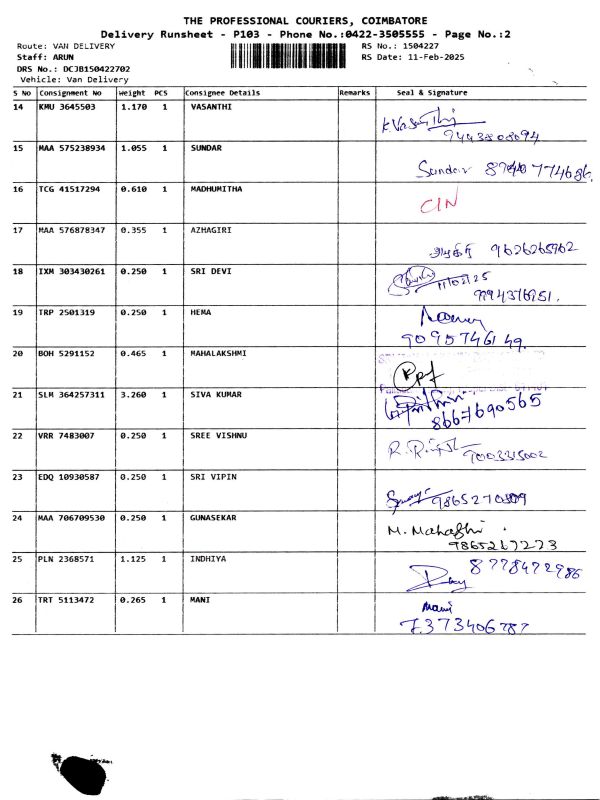 THE PROFESSIONAL COURIERS, COIMBATORE
Delivery Runsheet - P103 - Phone No.:0422-3505555 - Page No.:2
Route: VAN DELIVERY RS No.: 1504227
Staff: ARUN RS Date: 11-Feb-2025
DRS No.: DCJB150422702
Vehicle: Van Delivery
S No Consignment No Weight PCS Consignee Details Remarks Seal & Signature
14 KMU 3645503 1.170 1 VASANTHI K.Vasanthi
9443808094
15 MAA 575238934 1.055 1 SUNDAR
Sundar
16 TCG 41517294 0.610 1 MADHUMITHA CIN
17 MAA 576878347 0.355 1 AZHAGIRI
9626265962
18 IXM 303430261 0.250 1 SRI DEVI 11/02/25
19 TRP 2501319 0.250 1 HEMA
9095746149.
20 BOH 5291152 0.465 1 MAHALAKSHMI
21 SLM 364257311 3.260 1 SIVA KUMAR
8667690565
22 VRR 7483007 0.250 1 SREE VISHNU
9003315002
23 EDQ 10930587 0.250 1 SRI VIPIN
24 MAA 706709530 0.250 1 GUNASEKAR
9865267273
25 PLN 2368571 1.125 1 INDHIYA 8778472986
26 TRT 5113472 0.265 1 MANI Mani
7373406787